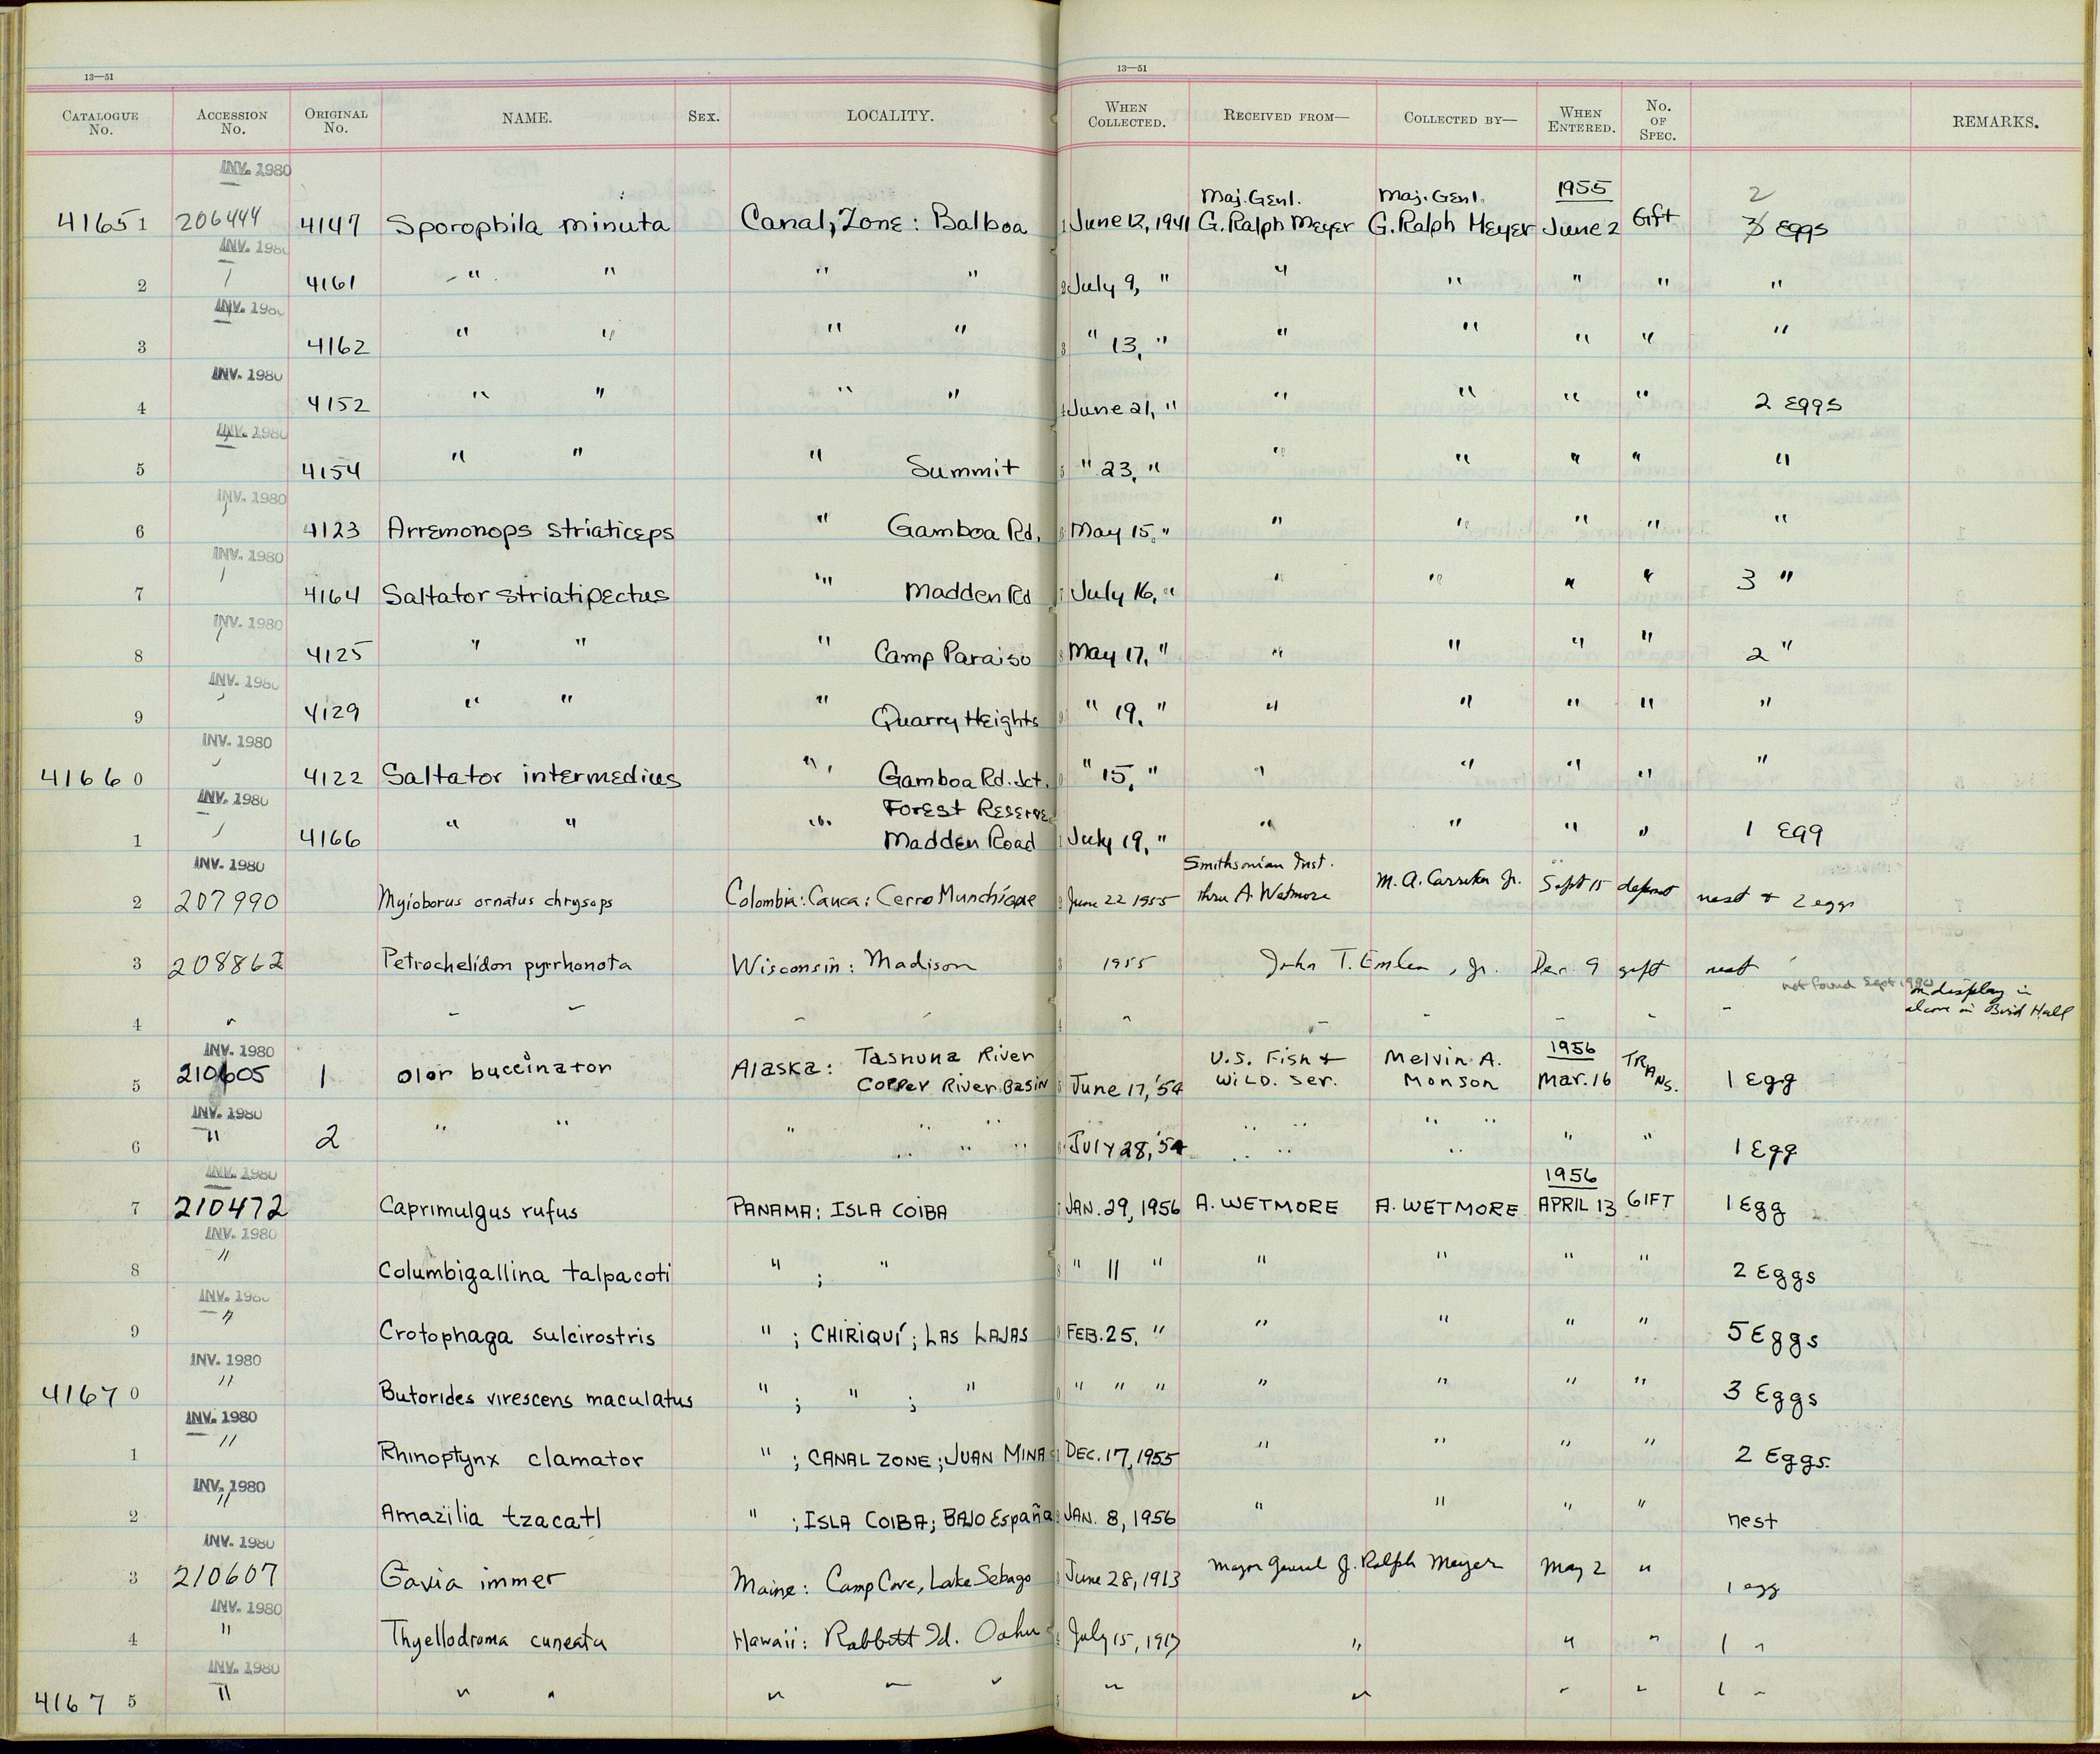 13—51 13—51
CATALOGUE No. ACCESSION No. ORIGINAL No. NAME. SEX. LOCALITY. WHEN COLLECTED. RECEIVED FROM— COLLECTED BY— WHEN ENTERED. No. OF SPEC. REMARKS.
INV. 1980
41651 206444 4147 Sporophila minuta Canal Zone: Balboa 1 June 12, 1941 Maj. Genl. G. Ralph Meyer Maj. Genl. G. Ralph Meyer 1955 June 2 Gift 2 3 Eggs
INV. 1980
2 4161 " " " " 2 July 9, " " " " " "
INV. 1980
3 4162 " " " " 3 " 13, " " " " " "
INV. 1980
4 4152 " " " " 4 June 21, " " " " " 2 Eggs
INV. 1980
5 4154 " " " Summit 5 " 23, " " " " " "
INV. 1980
6 4123 Arremonops striaticeps " Gamboa Rd. 6 May 15, " " " " " "
INV. 1980
7 4164 Saltator striatipectus " Madden Rd 7 July 16, " " " " " 3 "
INV. 1980
8 4125 " " " Camp Paraiso 8 May 17, " " " " " 2 "
INV. 1980
9 4129 " " " Quarry Heights 9 " 19, " " " " " "
INV. 1980
41660 4122 Saltator intermedius " Gamboa Rd. Jct. 0 " 15, " " " " " "
INV. 1980
1 4166 " " " Forest Reserve Madden Road 1 July 19, " " " " " 1 Egg
INV. 1980
2 207990 Myioborus ornatus chrysops Colombia: Cauca: Cerro Munchique 2 June 22 1955 Smithsonian Inst. thru A. Wetmore M. A. Carriker Jr. Sept 15 deposit nest + 2 eggs
3 208862 Petrochelidon pyrrhonota Wisconsin: Madison 3 1955 John T. Emlen, Jr. Dec. 9 gift nest
not found Sept 1980
4 " " " " " 4 " " " " " " on display in alcove in Bird Hall
INV. 1980
5 210605 1 Olor buccinator Alaska: Tasnuna River Copper River Basin 5 June 17, '54 U.S. Fish + Wild. Ser. Melvin A. Monson 1956 Mar. 16 Trans. 1 Egg
INV. 1980
6 " 2 " " " " " " " " 6 July 28, '54 " " " " " " " " " 1 Egg
INV. 1980
7 210472 Caprimulgus rufus PANAMA: ISLA COIBA 7 JAN. 29, 1956 A. WETMORE A. WETMORE 1956 APRIL 13 GIFT 1 Egg
INV. 1980
8 " Columbigallina talpacoti " ; " 8 " 11 " " " " " 2 Eggs
INV. 1980
9 " Crotophaga sulcirostris " ; CHIRIQUÍ; LAS LAJAS 9 FEB. 25, " " " " " 5 Eggs
INV. 1980
41670 " Butorides virescens maculatus " ; " ; " 0 " " " " " " " 3 Eggs
INV. 1980
1 " Rhinoptynx clamator " ; CANAL ZONE; JUAN MINA 1 DEC. 17, 1955 " " " " 2 Eggs.
INV. 1980
2 " Amazilia tzacatl " ; ISLA COIBA; BAJO España 2 JAN. 8, 1956 " " " " nest
INV. 1980
3 210607 Gavia immer Maine: Camp Cove, Lake Sebago 3 June 28, 1913 Major General G. Ralph Meyer May 2 " 1 egg
INV. 1980
4 " Thyellodroma cuneata Hawaii: Rabbitt Id. Oahu 4 July 15, 1917 " " " 1 "
INV. 1980
41675 " " " " " " 5 " " " " 1 "